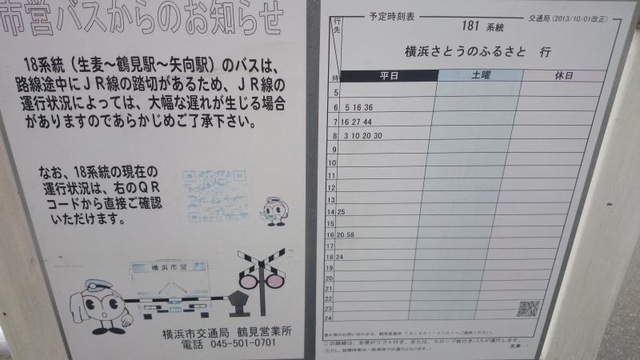 市営バスからのお知らせ
18系統（生麦～鶴見駅～矢向駅）のバスは、
路線途中にJR線の踏切があるため、JR線の
運行状況によっては、大幅な遅れが生じる場合
がありますのであらかじめご了承下さい。
なお、18系統の現在の
運行状況は、右のQR
コードから直接ご確認
いただけます。
横浜市営
横浜市交通局 鶴見営業所
電話 045-501-0701
行先
予定時刻表
181 系統
交通局(2013/10/01改正)
横浜さとうのふるさと 行
時
平日
土曜
休日
5
6 5 16 36
7 16 27 44
8 3 10 20 30
9
10
11
12
13
14 25
15
16 20 58
17
18 24
19
20
21
22
23
24